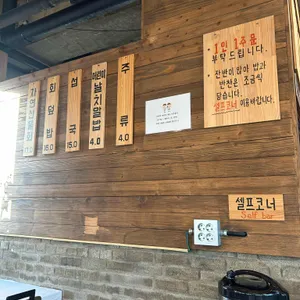 회덮밥
16.0
섭국
15.0
날치알밥
4.0
주류
4.0
1인 1주문
부탁드립니다.
잔반이 많아 밥과
반찬은 조금씩
담습니다.
셀프코너 이용바랍니다.
셀프코너
Self bar